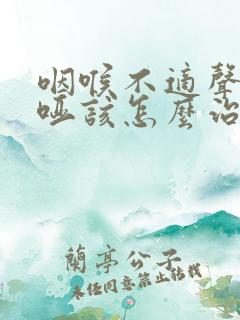 咽喉不適聲
啞該怎麼治
蘭亭公子
未经同意禁止转载